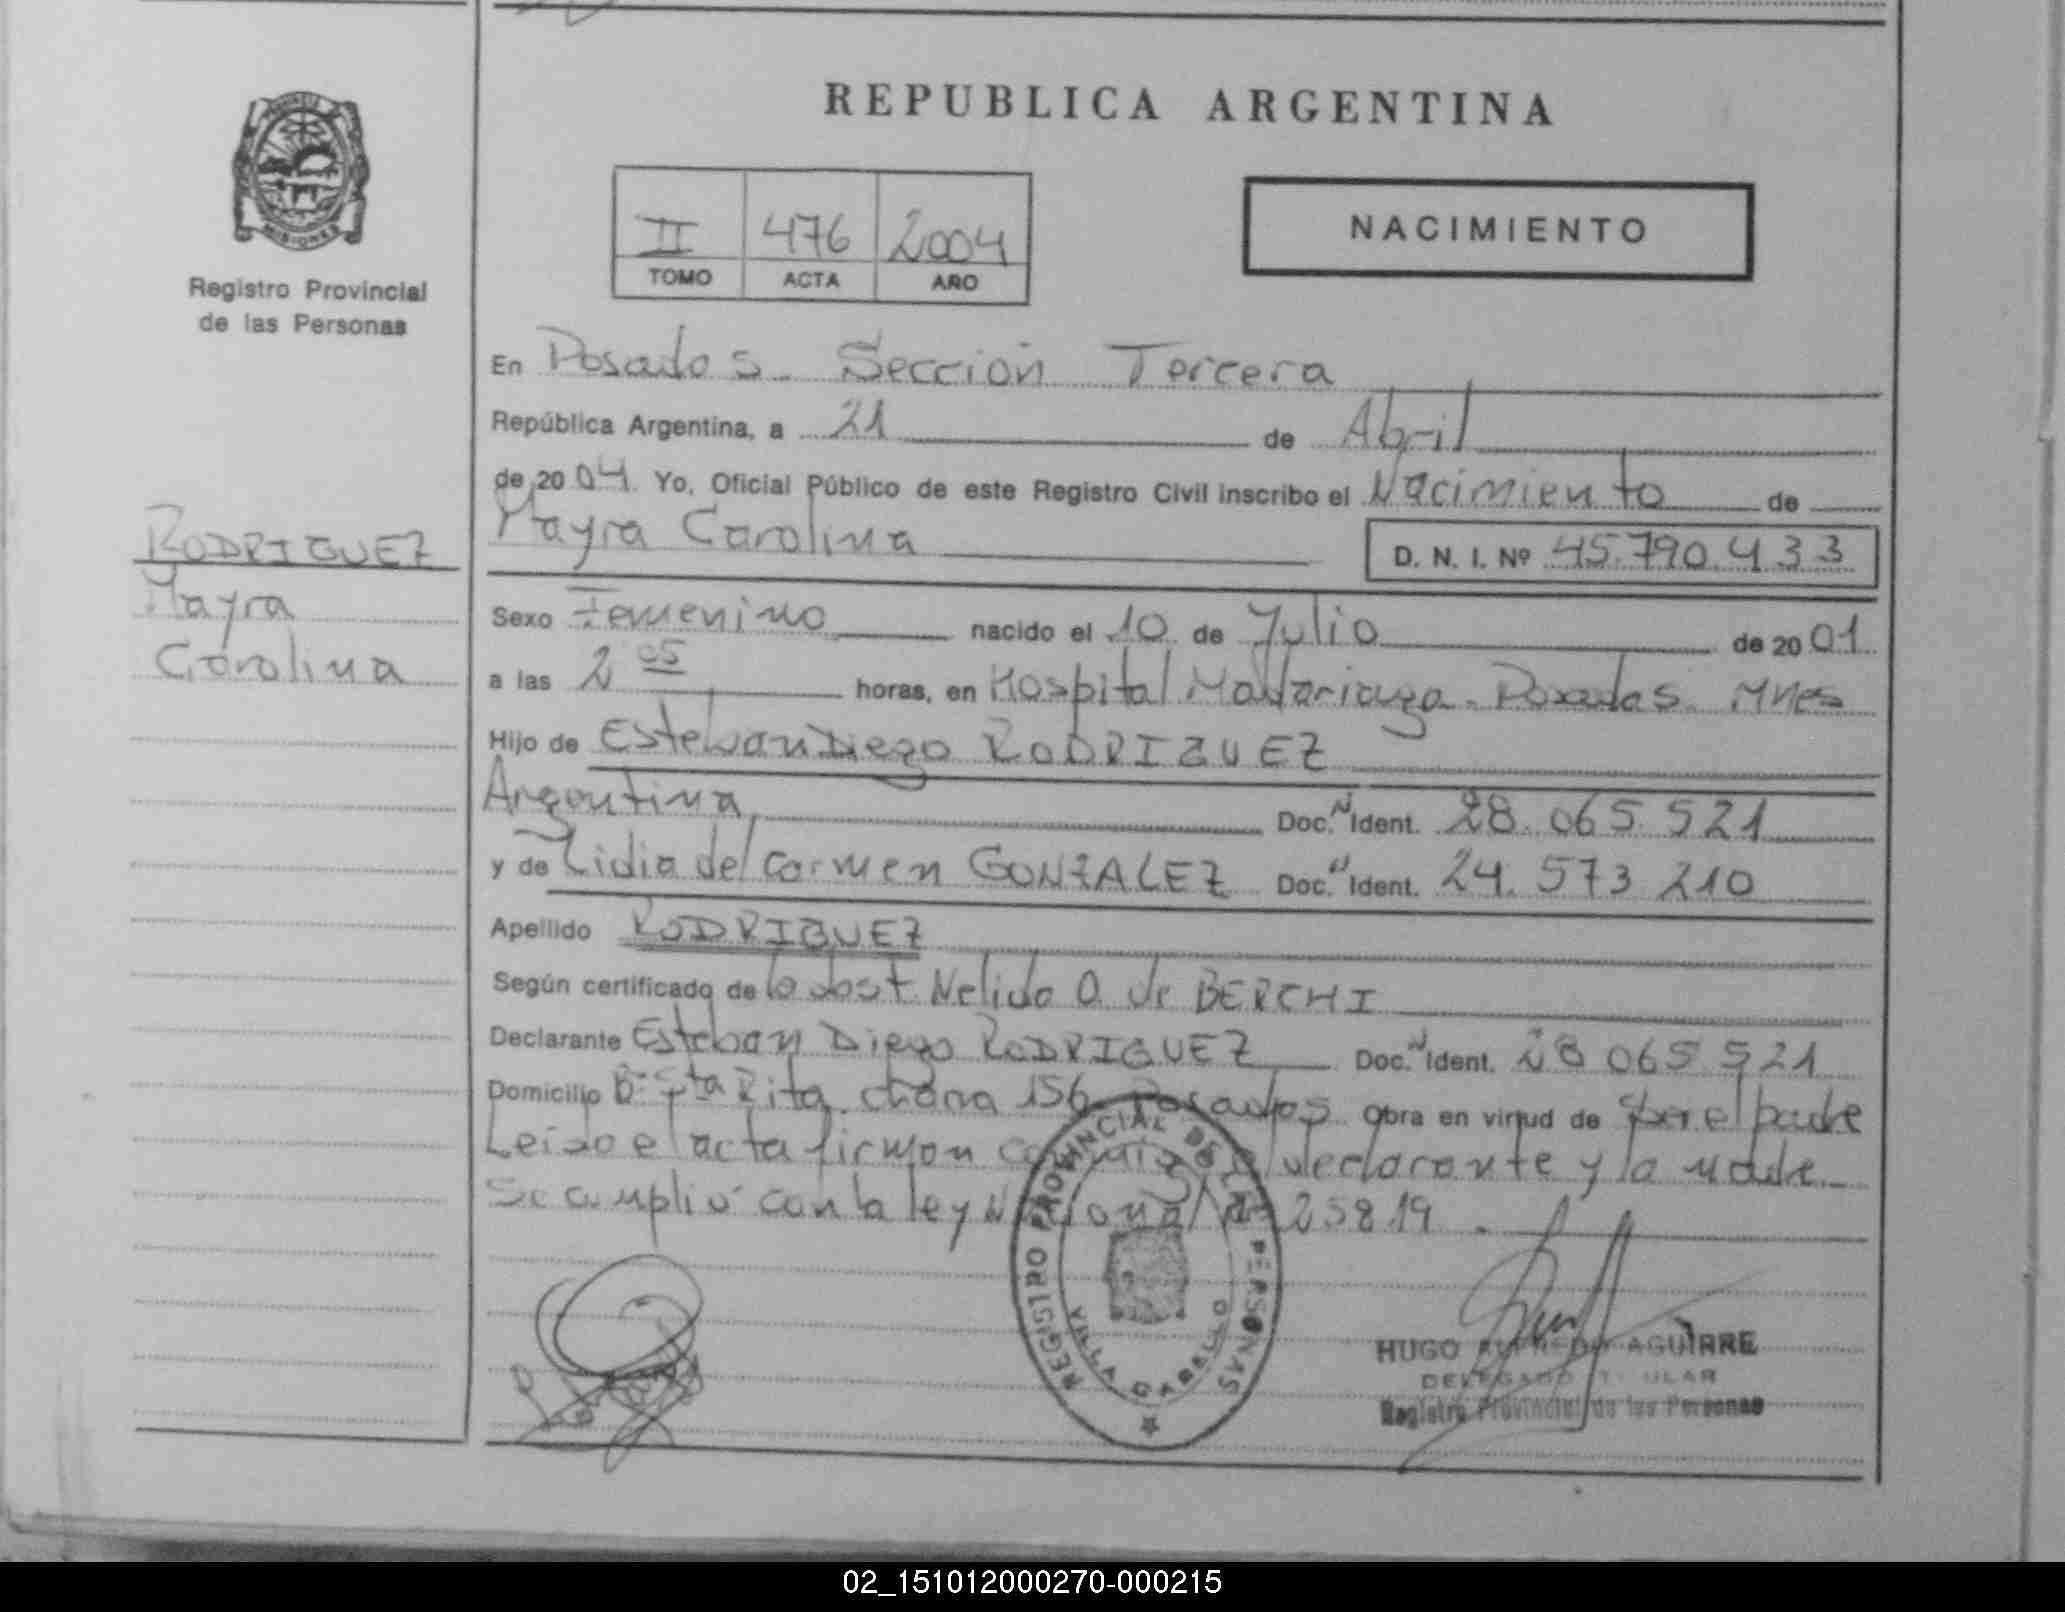 REPUBLICA ARGENTINA
MISIONES
Registro Provincial
de las Personas
II 476 2004
TOMO ACTA AÑO
NACIMIENTO
En Posadas. Sección Tercera
República Argentina, a 21 de Abril
de 2004. Yo, Oficial Público de este Registro Civil inscribo el Nacimiento de
Mayra Carolina D. N. I. Nº 45.790.433
RODRIGUEZ
Mayra
Carolina
Sexo Femenino nacido el 10 de Julio de 2001
a las 2 05 horas, en Hospital Madariaga. Posadas. Mnes
Hijo de Esteban Diego RODRIGUEZ
Argentina Doc. N Ident. 28.065.521
y de Lidia del Carmen GONZALEZ Doc. N Ident. 24.573 210
Apellido RODRIGUEZ
Según certificado de la obst. Nelida O. de BERCHI
Declarante Esteban Diego RODRIGUEZ Doc. N Ident. 28 065.521
Domicilio Bº Sta Rita. chacra 156 Posadas. Obra en virtud de ser el padre
Leido el acta firman conmigo el declarante y la madre
Se cumplió con la ley Nacional Nº 25819.
REGISTRO PROVINCIAL DE LAS PERSONAS
VILLA CABELLO
HUGO ALFREDO AGUIRRE
DELEGADO TITULAR
Registro Provincial de las Personas
02_151012000270-000215